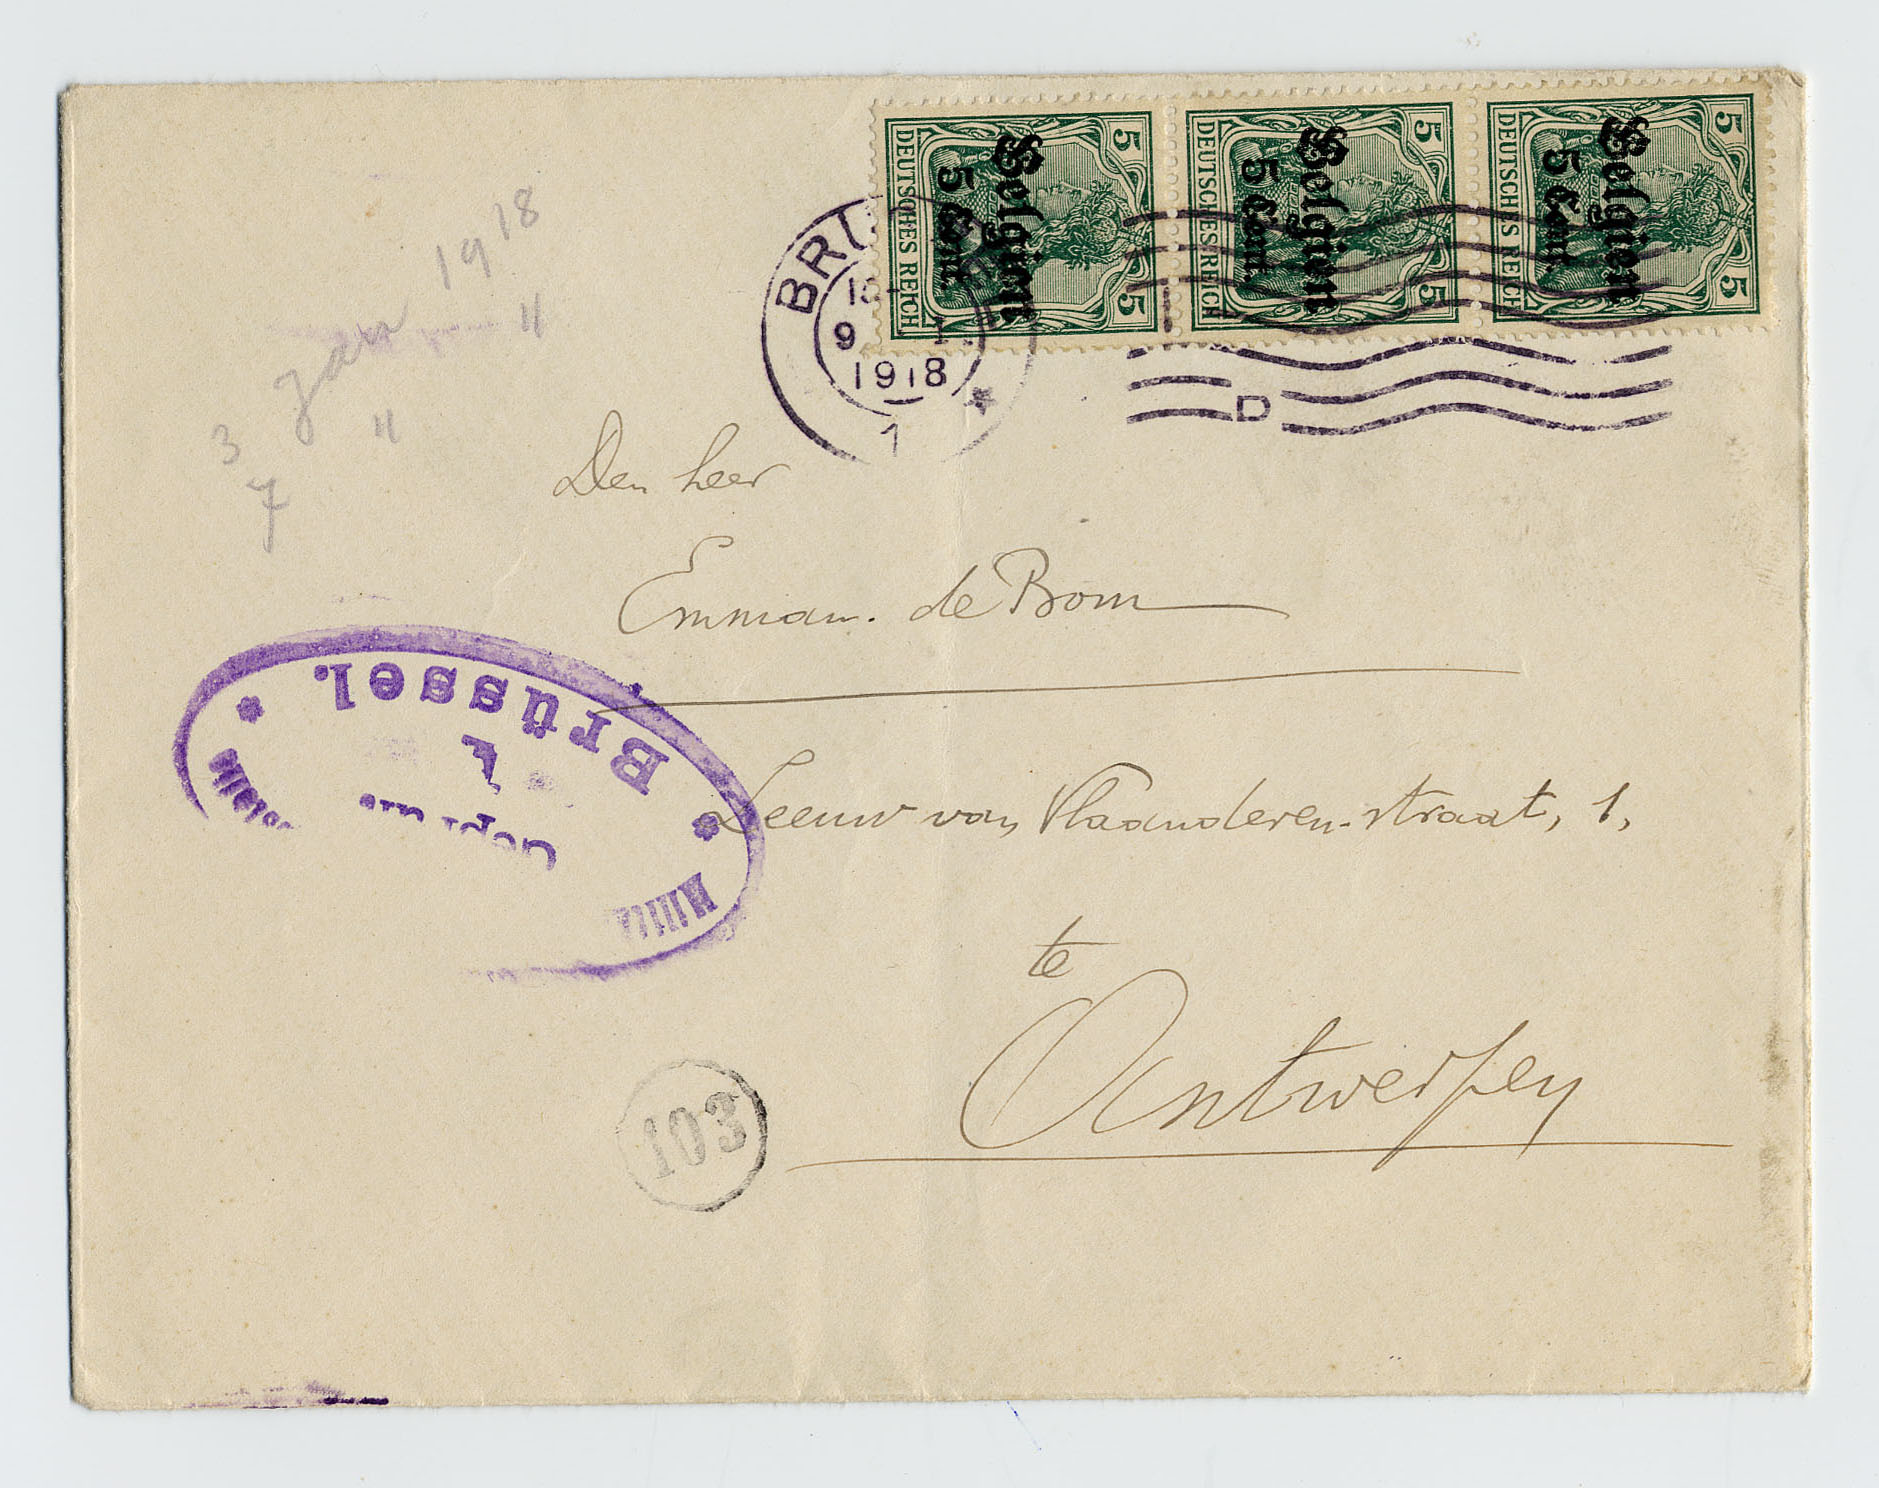 5 DEUTSCHES REICH 5
Belgien
5 Cent.
5 DEUTSCHES REICH 5
Belgien
5 Cent.
5 DEUTSCHES REICH 5
Belgien
5 Cent.
9
1918
1
D
Jan 1918
3 " "
7
Den heer
Emman. de Bom
Leeuw van Vlaanderen-straat, 1,
te
Antwerpen
Brüssel.
103